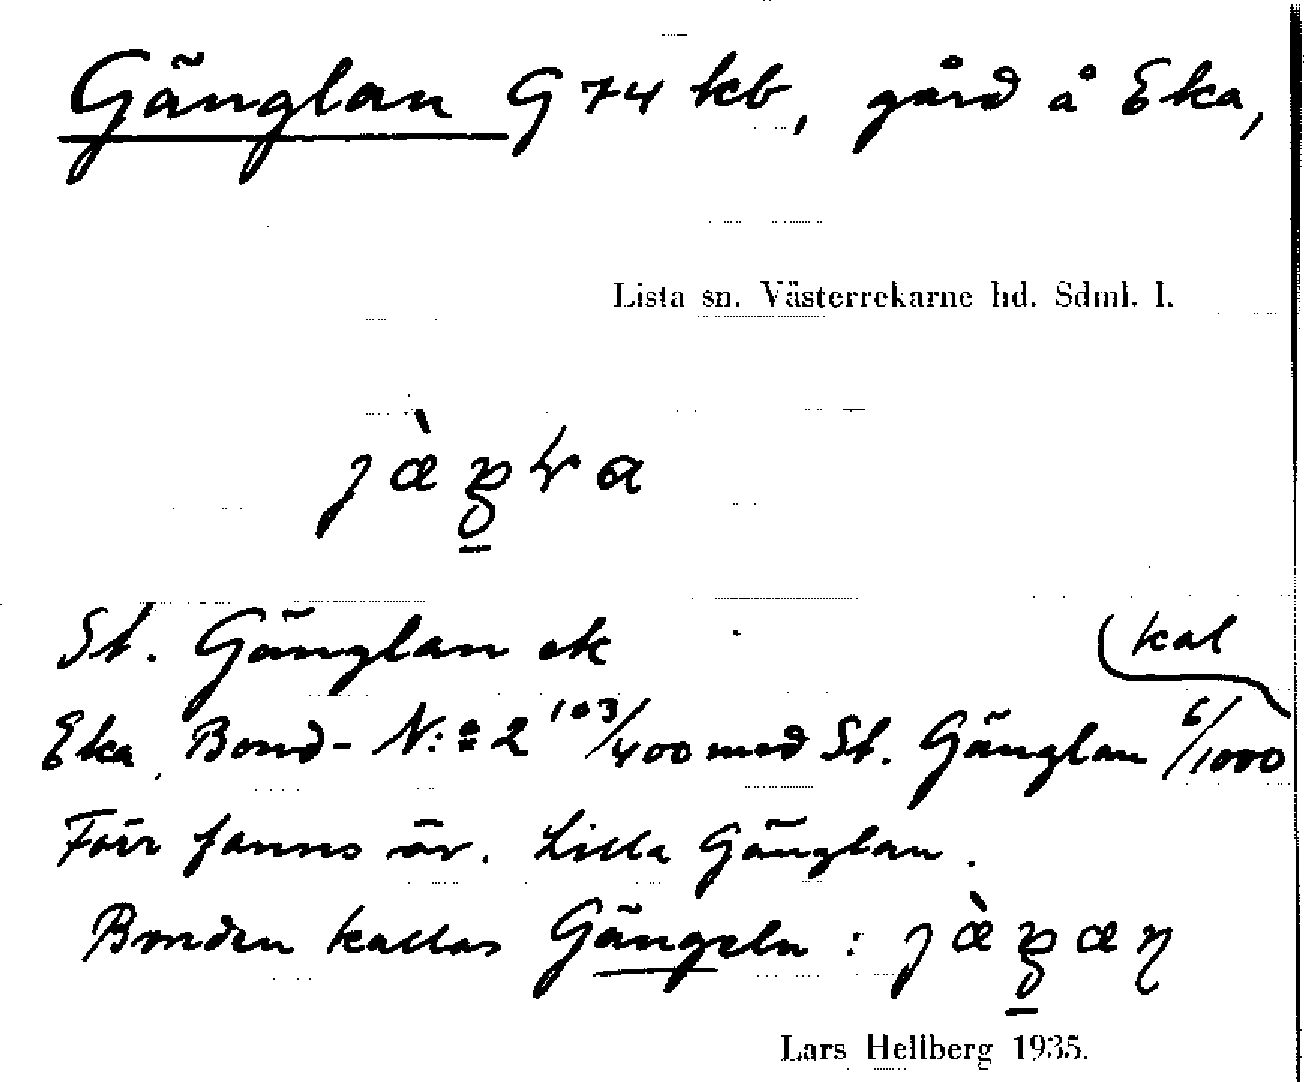 Gänglan G74 kb, gård å Eka,
Lista sn. Västerrekarne hd. Sdml. l.
St. Gänglan ek
(kal
Eka Bond- N:o 2 103/400 med St. Gänglan 6/1000
Förr fanns äv. Lilla Gänglan.
Bonden kallas Gängeln :
Lars Hellberg 1935.